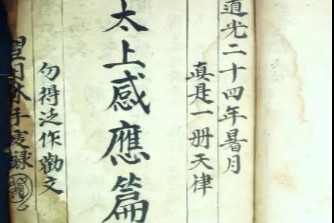 道光二十四年暑月
真是一册天津
太上感應篇
勿得泛作勸文
望月 手 錄